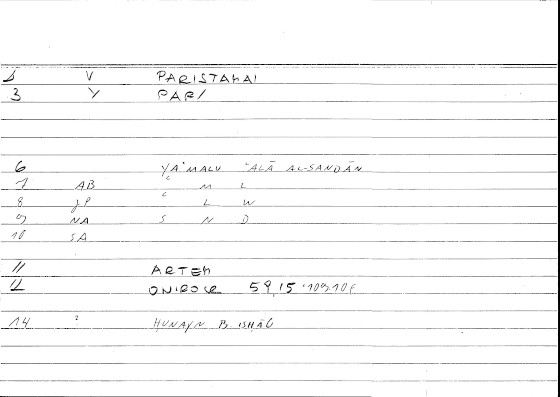 V PARISTAHAI
3 Y PAR/
6 YAʿMALU ʿALĀ AL-SANDĀN
7 AB ʿ M L
8 JP ʿ L W
9 NA S N D
10 SA
11 ARTEM
ONIROCR 59,15
14 ? HUNAYN B ISHĀQ